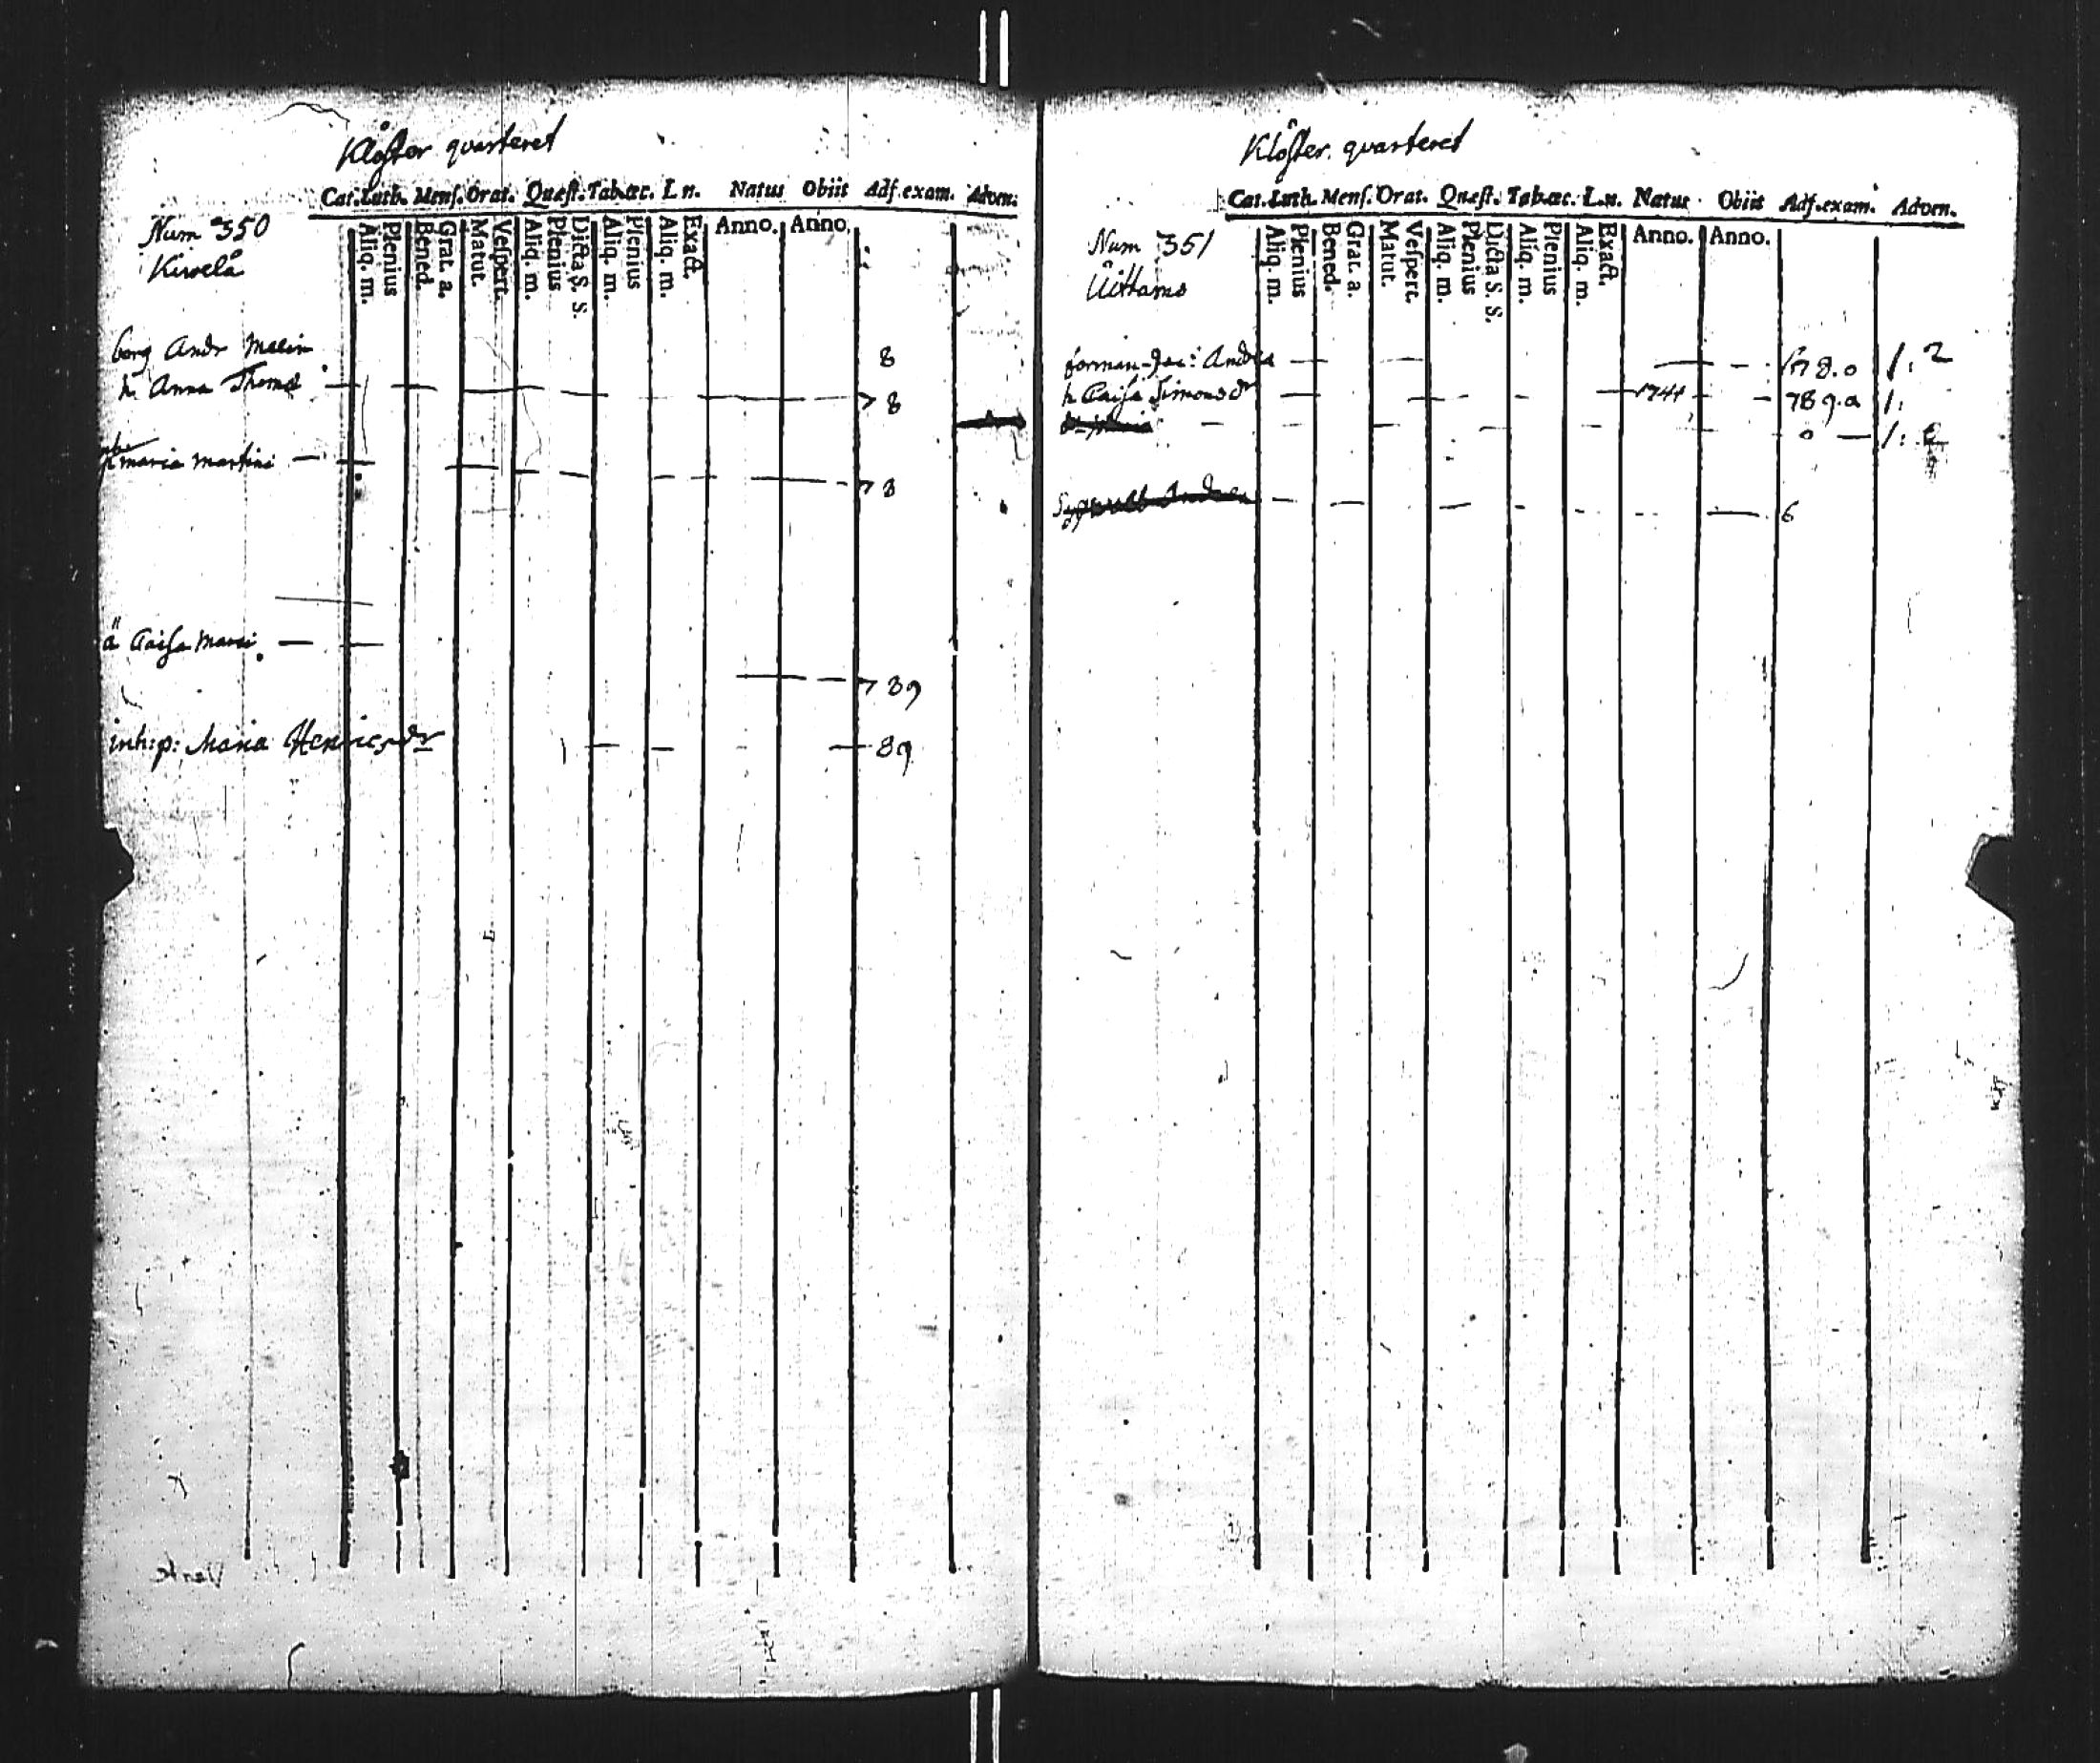 Klöster quarteret
Cat. Luth. Mens. Orat. Quæst. Tab. œc. L n. Natus Obiit Adſ. exam. Adven.
Aliq. m. Plenius Bened. Grat. a. Matut. Veſpert. Aliq. m. Plenius Dicta S. S. Aliq. m. Plenius Aliq. m. Exact. Anno. Anno.
Num 350
Kirvelä
borg Andr Malin 8
h. Anna Thomæ 7 8
maria martini 7 8
Caisa 7 89
inh: p: Maria Henricsdr 89
Klöster quarteret
Cat. Luth. Mens. Orat. Quæst. Tab. œc. L. n. Natus Obiit Adſ. exam. Adven.
Aliq. m. Plenius Bened. Grat. a. Matut. Veſpert. Aliq. m. Plenius Dicta S. S. Aliq. m. Plenius Aliq. m. Exact. Anno. Anno.
Num 351
Uittamo
forman Jac: Andreæ 178.0 1: 2
h Caisa Simonsdr 1744 789.0 1:
0 1:
6